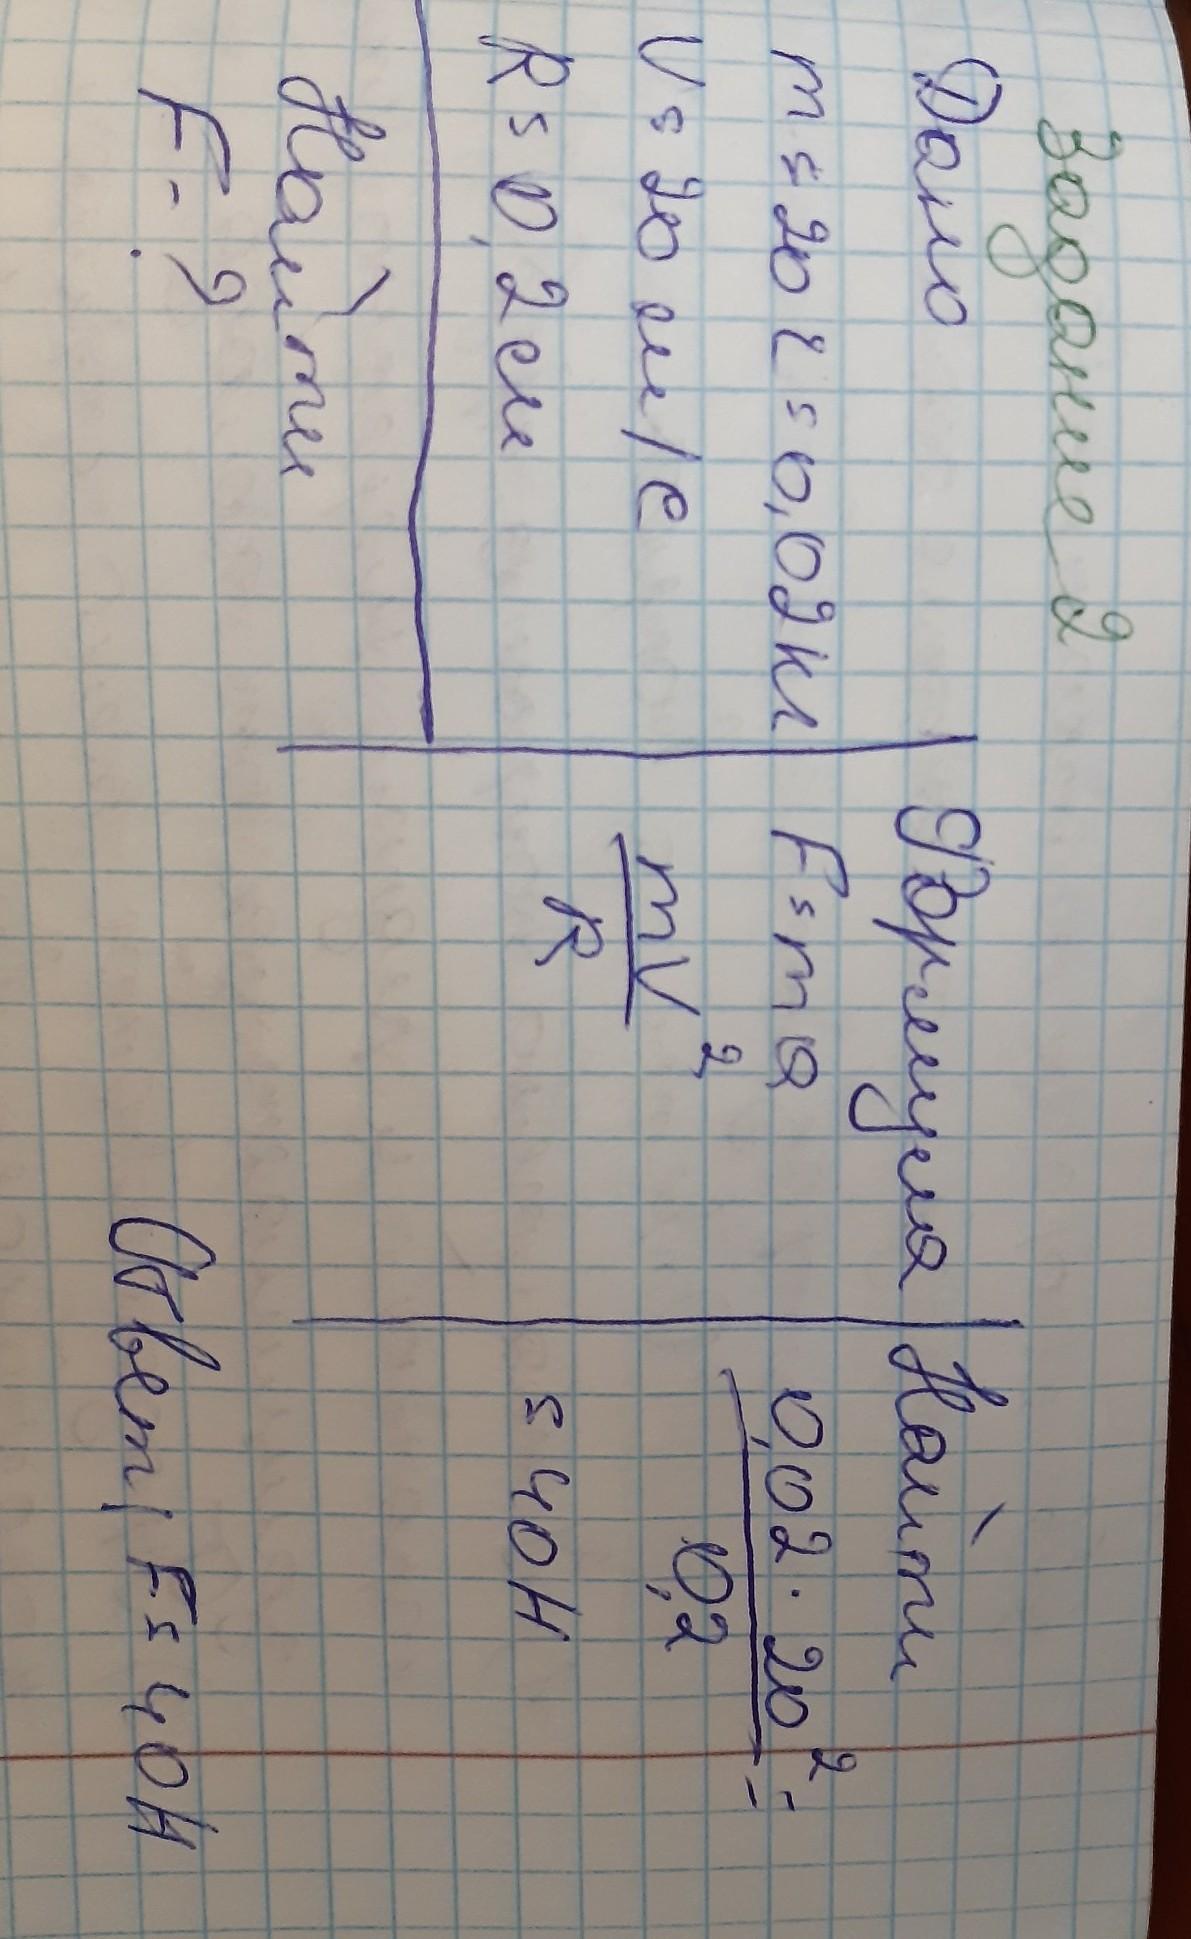 Задание 2
Дано
m = 20 г = 0,02 кг
V = 20 м/с
R = 0,2 м
Найти
F - ?
Формула
F = ma
mV²
R
Найти
0,02 · 20² =
0,2
= 40 Н
Ответ: F = 40 Н